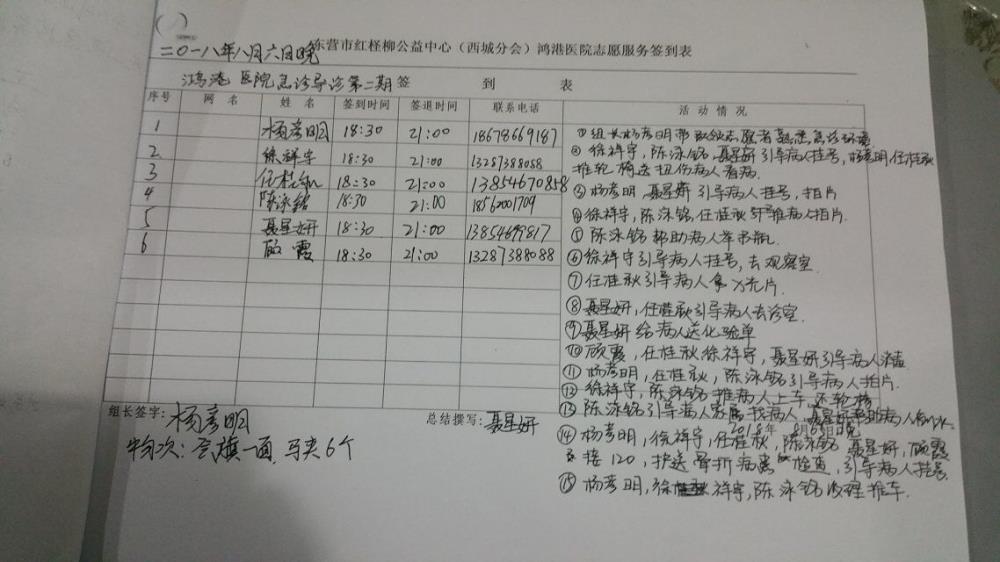 ( )
二〇一八年八月六日晚 东营市红柽柳公益中心（西城分会）鸿港医院志愿服务签到表
鸿港医院急诊导诊第二期签 到 表
序号 网 名 姓 名 签到时间 签退时间 联系电话 活 动 情 况
1 杨彦明 18:30 21:00 18678669187
2 徐祥宇 18:30 21:00 13287388088
3 任桂秋 18:30 21:00 13854670858
4 陈泳铭 18:30 21:00 18562001709
5 聂星妍 18:30 21:00 13854699817
6 顾霞 18:30 21:00 13287388088
①组长杨彦明带领志愿者熟悉急诊环境
②徐祥宇,陈泳铭,聂星妍引导病人挂号,杨彦明,任桂秋
推轮椅送扭伤病人看病.
③杨彦明,聂星妍引导病人挂号,拍片
④徐祥宇,陈泳铭,任桂秋 推病人拍片.
⑤陈泳铭帮助病人举吊瓶
⑥徐祥宇引导病人挂号,去观察室.
⑦任桂秋引导病人拿X光片.
⑧聂星妍,任桂秋引导病人去诊室.
⑨聂星妍给病人送化验单
⑩顾霞,任桂秋徐祥宇,聂星妍引导病人
⑪杨彦明,任桂秋,陈泳铭引导病人拍片.
⑫徐祥宇,陈泳铭推病人上车,还轮椅
⑬陈泳铭引导病人家属找病人,聂星妍帮助病人
2018年 8月6日晚
⑭杨彦明,徐祥宇,任桂秋,陈泳铭 聂星妍,顾霞
接120,护送骨折病患 检查,引导病人挂号.
⑮杨彦明,徐祥宇,陈泳铭 推车.
组长签字: 杨彦明 总结撰写: 聂星妍
物资: 旗一面,马夹6个